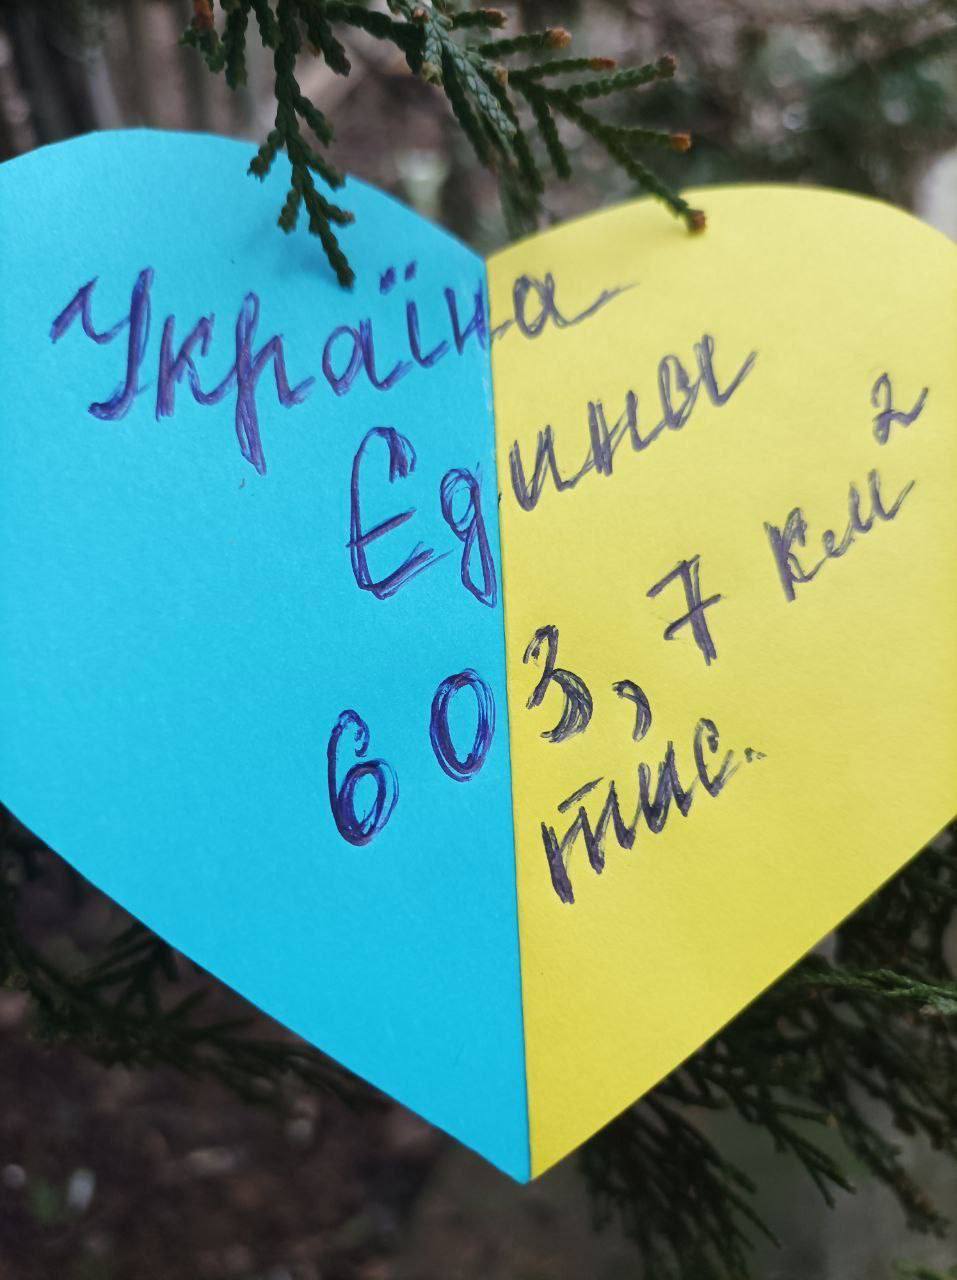 Україна
Єдины
603,7 км²
тис.